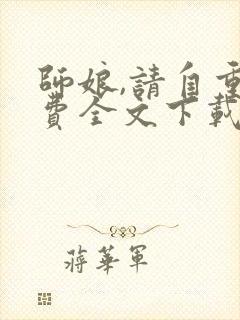 師娘,請自重
費全文下載
蔣華軍